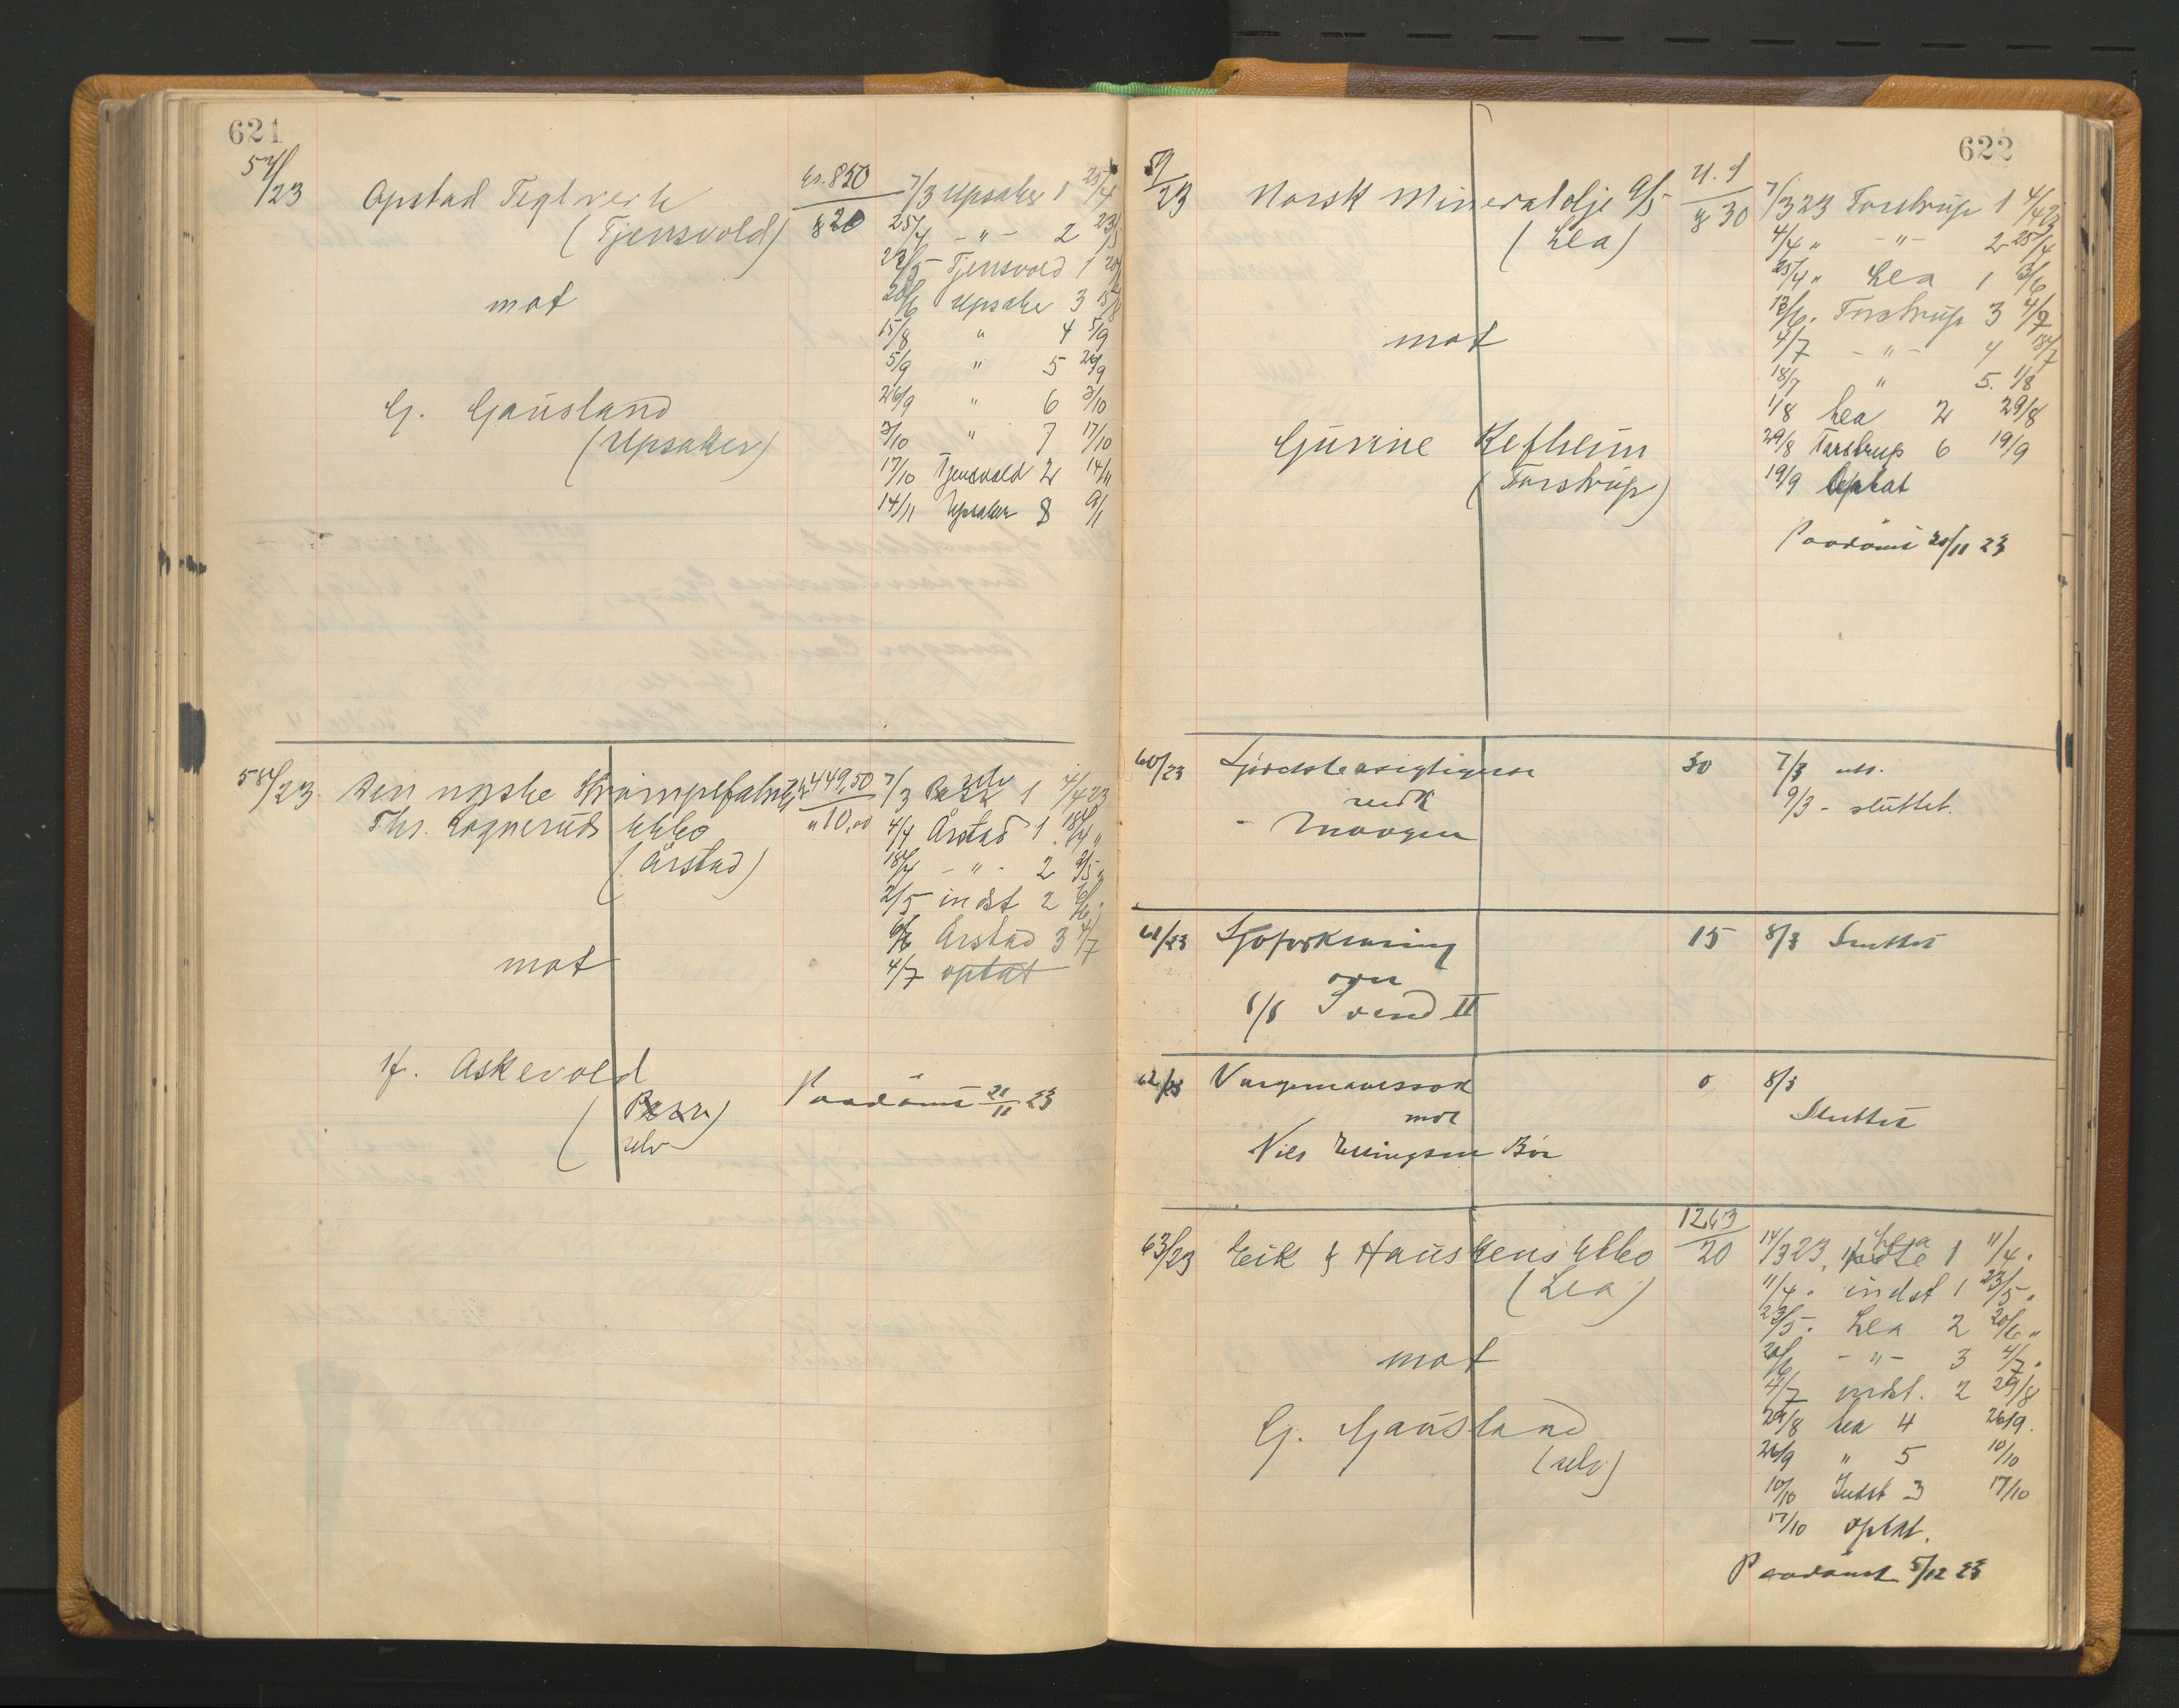 621
57/23 Opstad Teglverk kr. 850 7/3 Upsaker 1 25/4
(Tjensvold) g 20 25/4 - " - 2 23/5
23/5 Tjensvold 1 20/6
mot 20/6 Upsaker 3 15/8
15/8 " 4 5/9
5/9 " 5 26/9
G. Gausland 26/9 " 6 3/10
(Upsaker) 3/10 " 7 17/10
17/10 Tjensvold 2 14/11
14/11 Upsaker 8 9/1
58/23 Den norske Strømpefabrik, kr. 449,50 7/3 selv 1 4/4 23
Thr. Rogneruds Ekbo " 10,00 4/4 Årstad 1 18/4 "
(Årstad) 18/4 - " - 2 2/5 "
2/5 indst 2 6/6 "
6/6 Årstad 3 4/7
mot 4/7 optat
H. Askevold
Paadømt 21/11 23
selv
622
59/23 Norsk Mineralolje A/S U. S 7/3 23 Torstrup 1 4/4 23
(Lea) g 30 4/4 " - " - 2 25/4
25/4 " Lea 1 13/6
13/6 . Torstrup 3 4/7
mot 4/7 - " - 4 18/7
18/7 " 5. 1/8
1/8 Lea 2 29/8
Gurine Refheim 29/8 Torstrup 6 19/9
(Torstrup) 19/9 Optat
Paadømt 20/11 23
60/23 30 7/3 uts.
9/3 - sluttet.
61/23 Sjøforklaring 15 8/3 Sluttet
over
S/S Svend II
62/23 0 8/3
mot Sluttet
Nils Ellingsen Bøe
63/23 Eik & Hauskens Ekbo 1263 14/3 23. Lea 1 11/4 .
(Lea) 20 11/4 . indst 1 23/5 .
23/5 . Lea 2 20/6 "
mot 20/6 - " - 3 4/7 .
4/7 indst. 2 29/8
G. Gausland 29/8 Lea 4 26/9.
(selv) 26/9 " 5 10/10
10/10 Indst 3 17/10
17/10 optat.
Paadømt 5/12 23